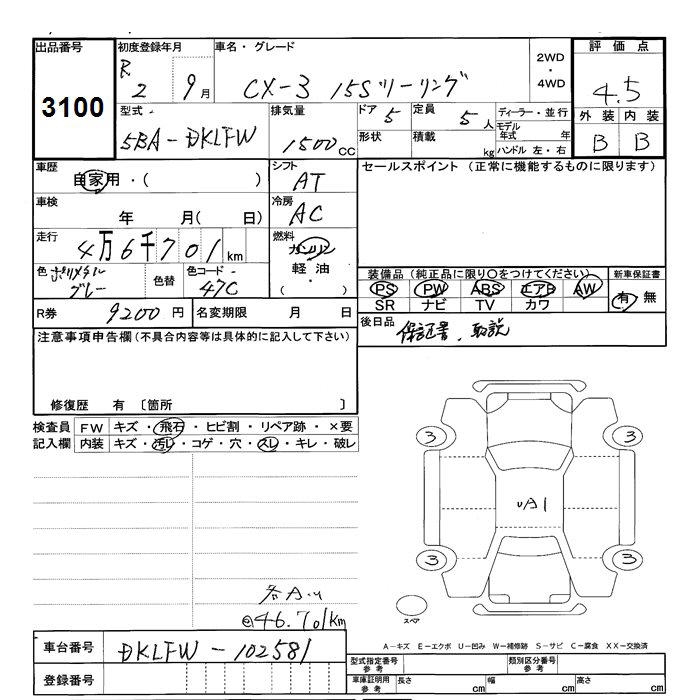 出品番号
3100
初度登録年月
R 2 9月
車名・グレード
CX-3 15Sツーリング
2WD
・
4WD
評価点
4.5
外装 内装
B B
型式
5BA-DKLFW
排気量
1500cc
ドア 5
定員 5人
形状
積載 kg
ディーラー・並行
モデル年式 年
ハンドル 左・右
車歴
自家用・( )
シフト
AT
セールスポイント (正常に機能するものに限ります)
車検
年 月( 日)
冷房
AC
走行
4万6千701km
燃料
ガソリン
軽油
( ・ )
色 ポリメタルグレー
色替
色コード
47C
装備品(純正品に限り○をつけてください)
PS PW ABS エアB AW
SR ナビ TV カワ
新車保証書
有 無
R券 9200円
名変期限 月 日
後日品 保証書、取説
注意事項申告欄(不具合内容等は具体的に記入して下さい)
修復歴 有 〔箇所 〕
検査員記入欄
FW キズ・飛石・ヒビ割・リペア跡・×要
内装 キズ・汚レ・コゲ・穴・スレ・キレ・破レ
3 3
UA1
3 3
スペア
@46.701km
A-キズ E-エクボ U-凹み W-補修跡 S-サビ C-腐食 XX-交換済
車台番号 DKLFW-102581
登録番号
型式指定番号
参考
類別区分番号
参考
車庫証明用
参考
長さ cm
幅 cm
高さ cm